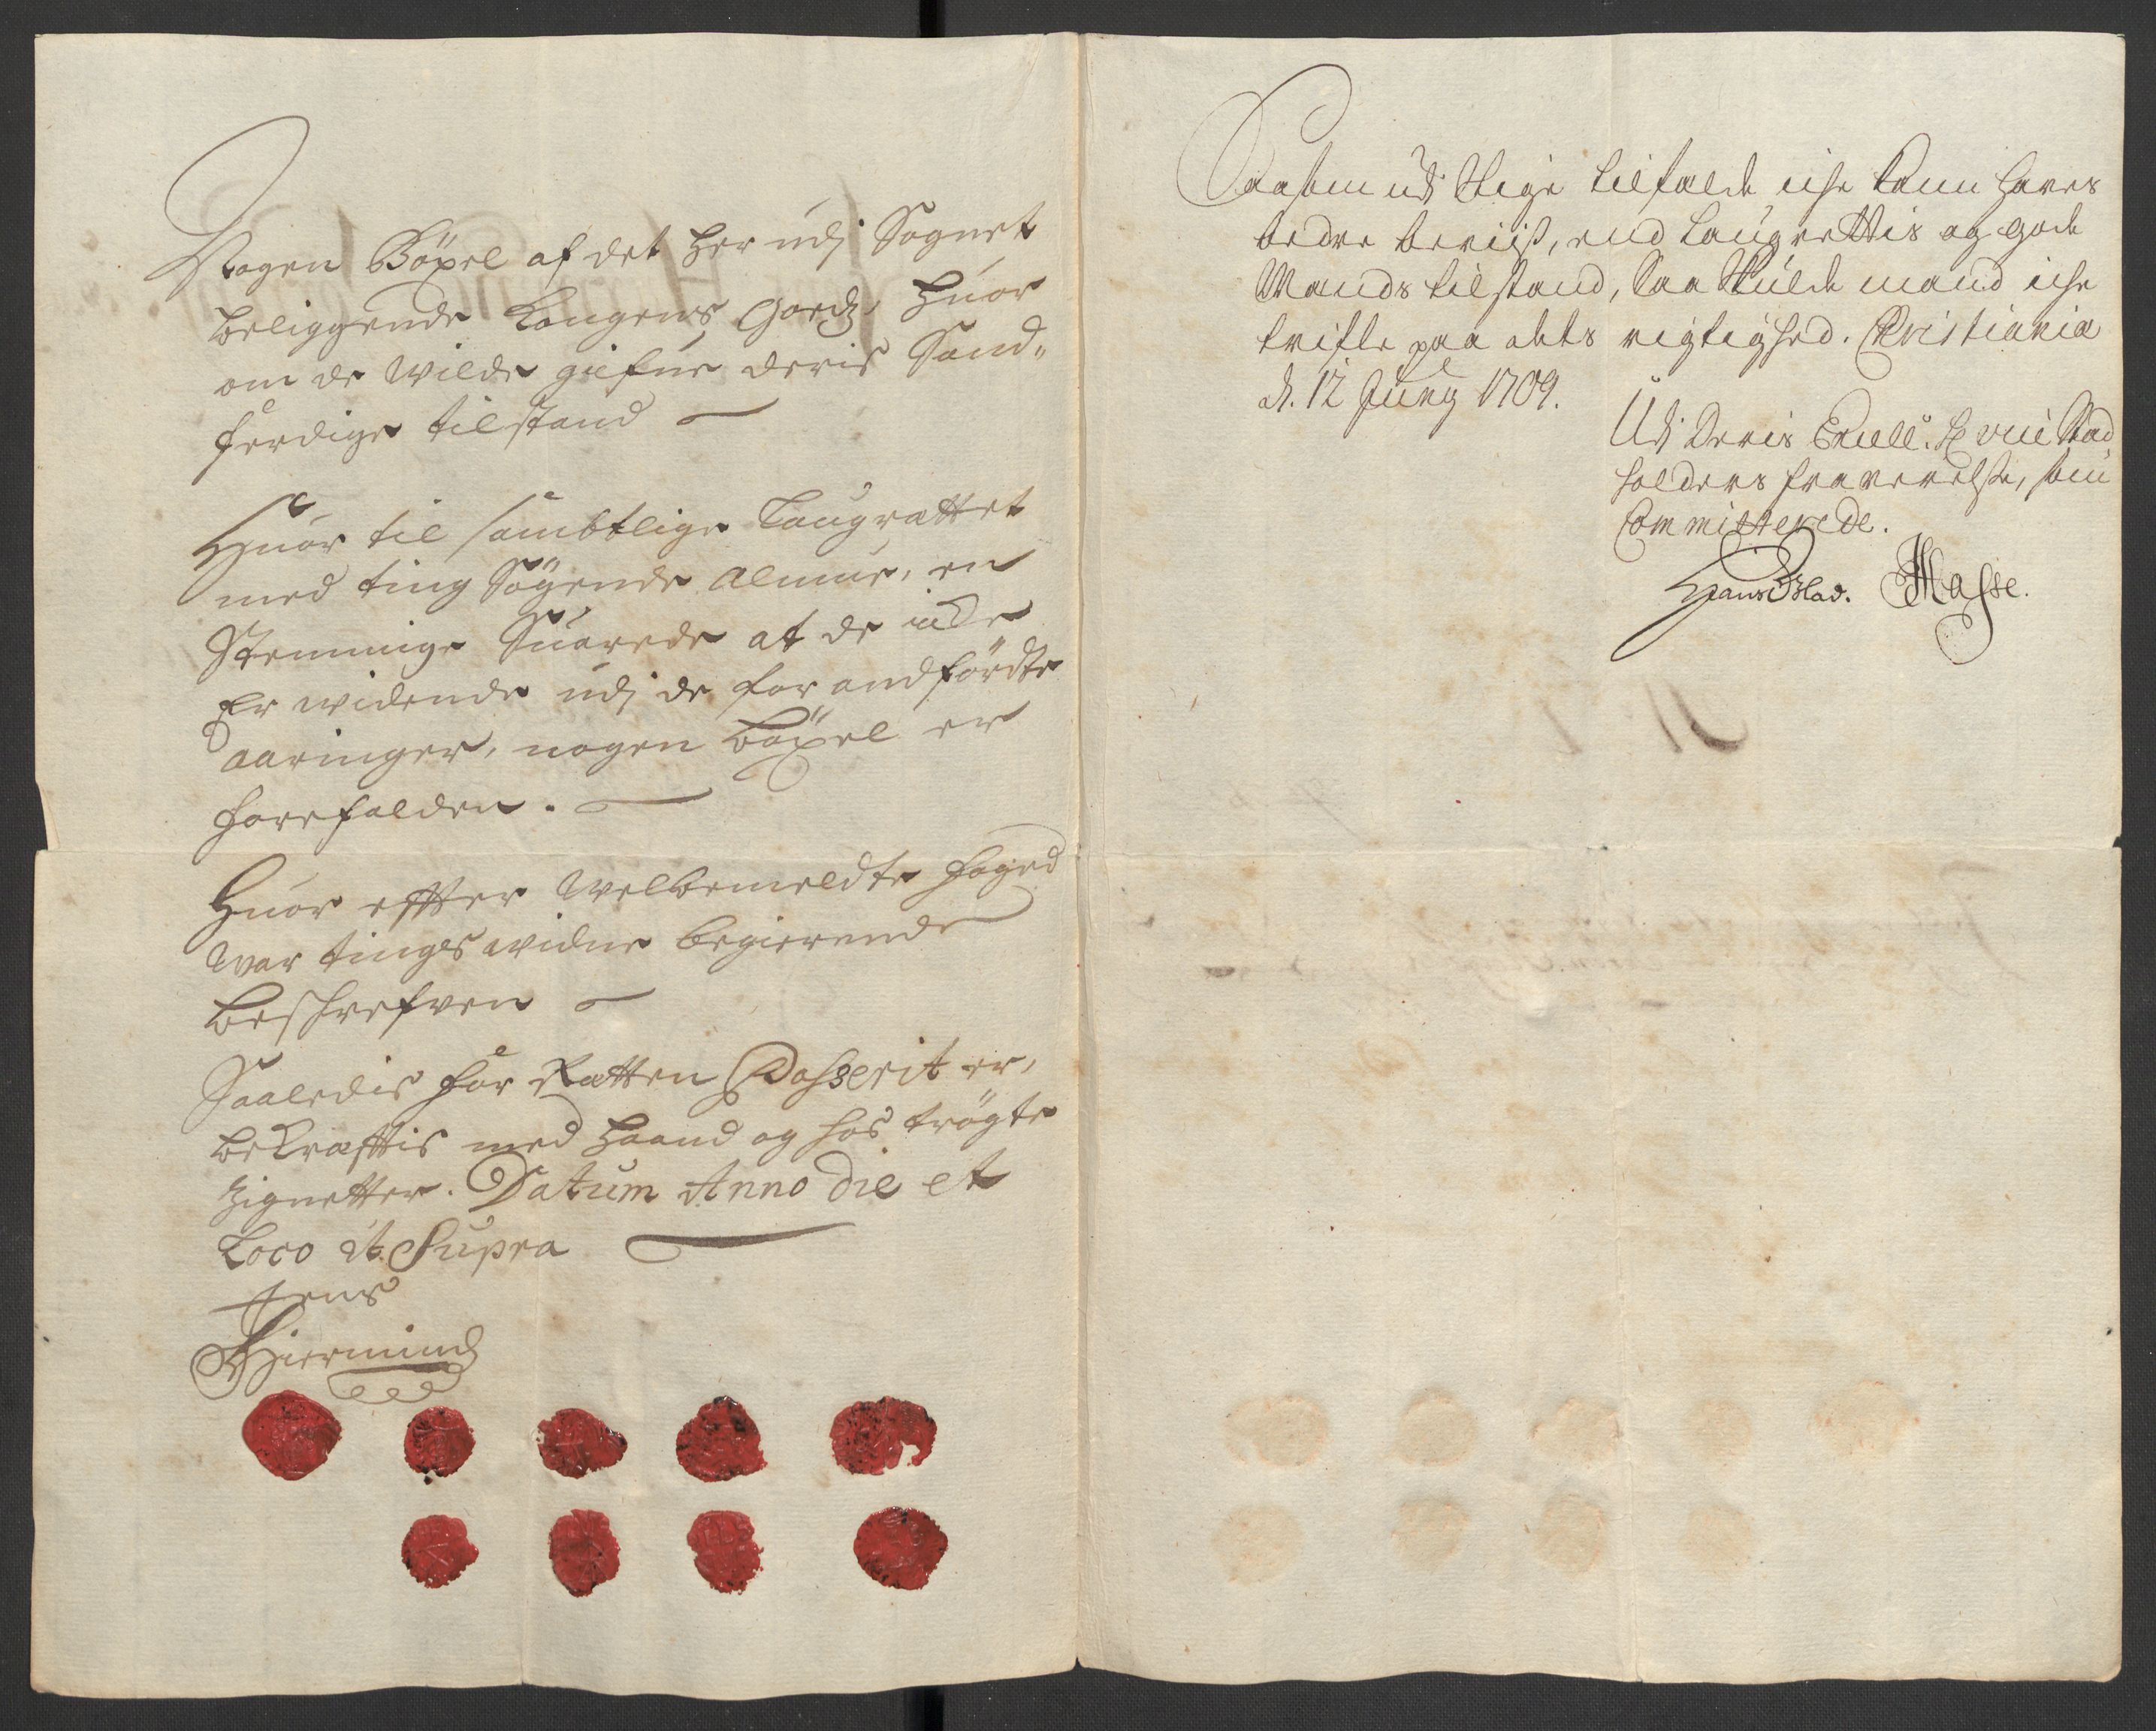 Nogen Böxel af det her udj Sognet
beliggende Kongens Gordz, huor
om de wilde giefue deris Sand„
ferdige tilstand
Huor til sambtlige Laugrættet
med ting Sögende Almue, en
Stemmige Suarede at de icke
Er widende udj de for andfördte
aaringer, nogen böxel er
forefalden.
Huor effter welbemeldte foged
war tingswidne begierende
beskrefven
Saaledis for Retten Passerit er,
bekræfftis med haand og hos trögte
Zignetter. Datum Anno die et
Loco ut Supra
Jens
Biermand
Saasom udj slige tilfælde iche kaun haves
bedre beviiss, end Laugrettis og gode
Mands tilstand, saa skulde mand iche
tvifle paa dets rigtighed. Christiania
d. 12 Juny 1709.
Udj Deris Excell. H Vice Stad
holders fraverelse, som
Committerede.
Hans Blad. Hasse.